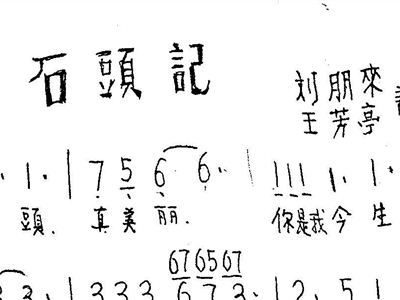 石頭記
刘朋來
王芳亭
· 1· | 7 5 6 6· | 1 1 1 1· 1·
頭. 真美丽. 你是我今生
676567
3 3· | 3 3 3 6 7 3· | 2· 5 1